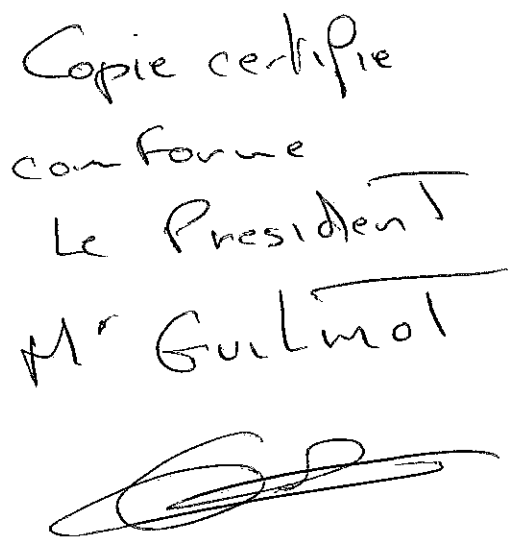 Copie certifie
conforme
Le President
Mr Guilmot